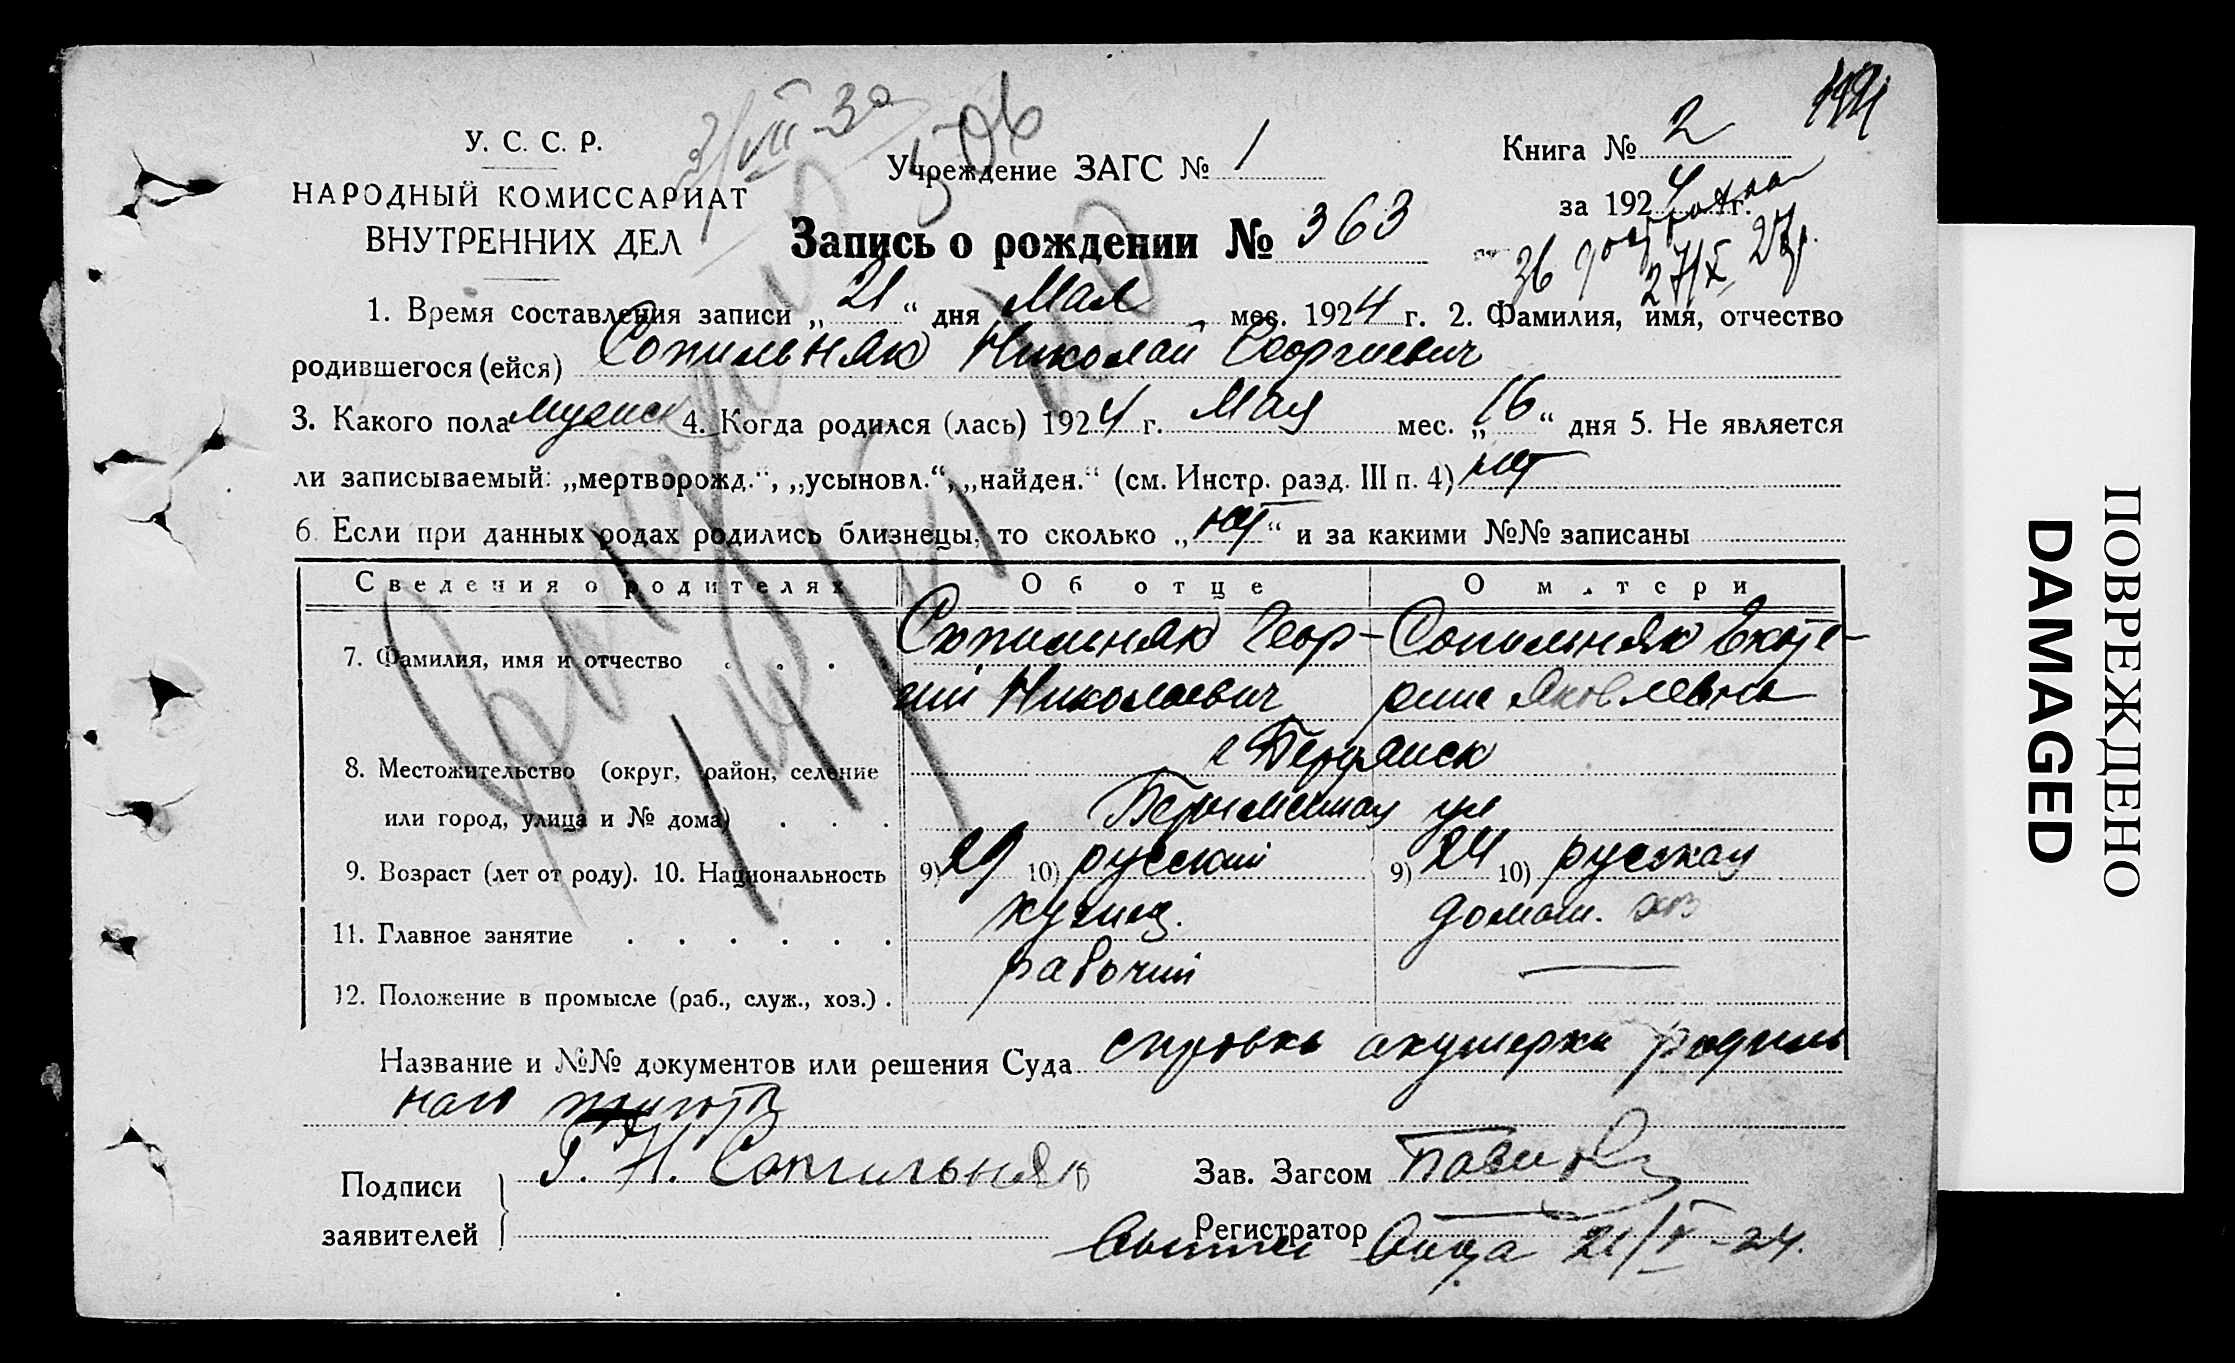 У. С. С. Р.
НАРОДНЫЙ КОМИССАРИАТ
ВНУТРЕННИХ ДЕЛ
Учреждение ЗАГС № 1
Книга № 2
за 1924 г.
Запись о рождении № 363
36 27/X 27 г.
1. Время составления записи „21“ дня Мая мес. 1924 г. 2. Фамилия, имя, отчество
родившегося (ейся) Сопильняк Николай Георгиевич
3. Какого пола мужск 4. Когда родился (лась) 1924 г. Мая мес. „16“ дня 5. Не является
ли записываемый: „мертворожд.“, „усыновл.“, „найден.“ (см. Инстр. разд. III п. 4) нет
6. Если при данных родах родились близнецы, то сколько „нет“ и за какими №№ записаны
Сведения о родителях Об отце О матери
7. Фамилия, имя и отчество . . . Сопильняк Геор- Сопильняк Екате-
гий Николаевич рина Яковлевна
8. Местожительство (округ, район, селение г Бердянск
или город, улица и № дома) . . . ул
9. Возраст (лет от роду). 10. Национальность 9) 29 10) русский 9) 24 10) русская
11. Главное занятие . . . . . . кузнец. домаш. хоз
12. Положение в промысле (раб., служ., хоз.) . рабочий —
Название и №№ документов или решения Суда справка акушерки родиль
наго
Подписи заявителей Г. Н. Сопильняк
Зав. Загсом
Регистратор
21/V-24.
ПОВРЕЖДЕНО
DAMAGED